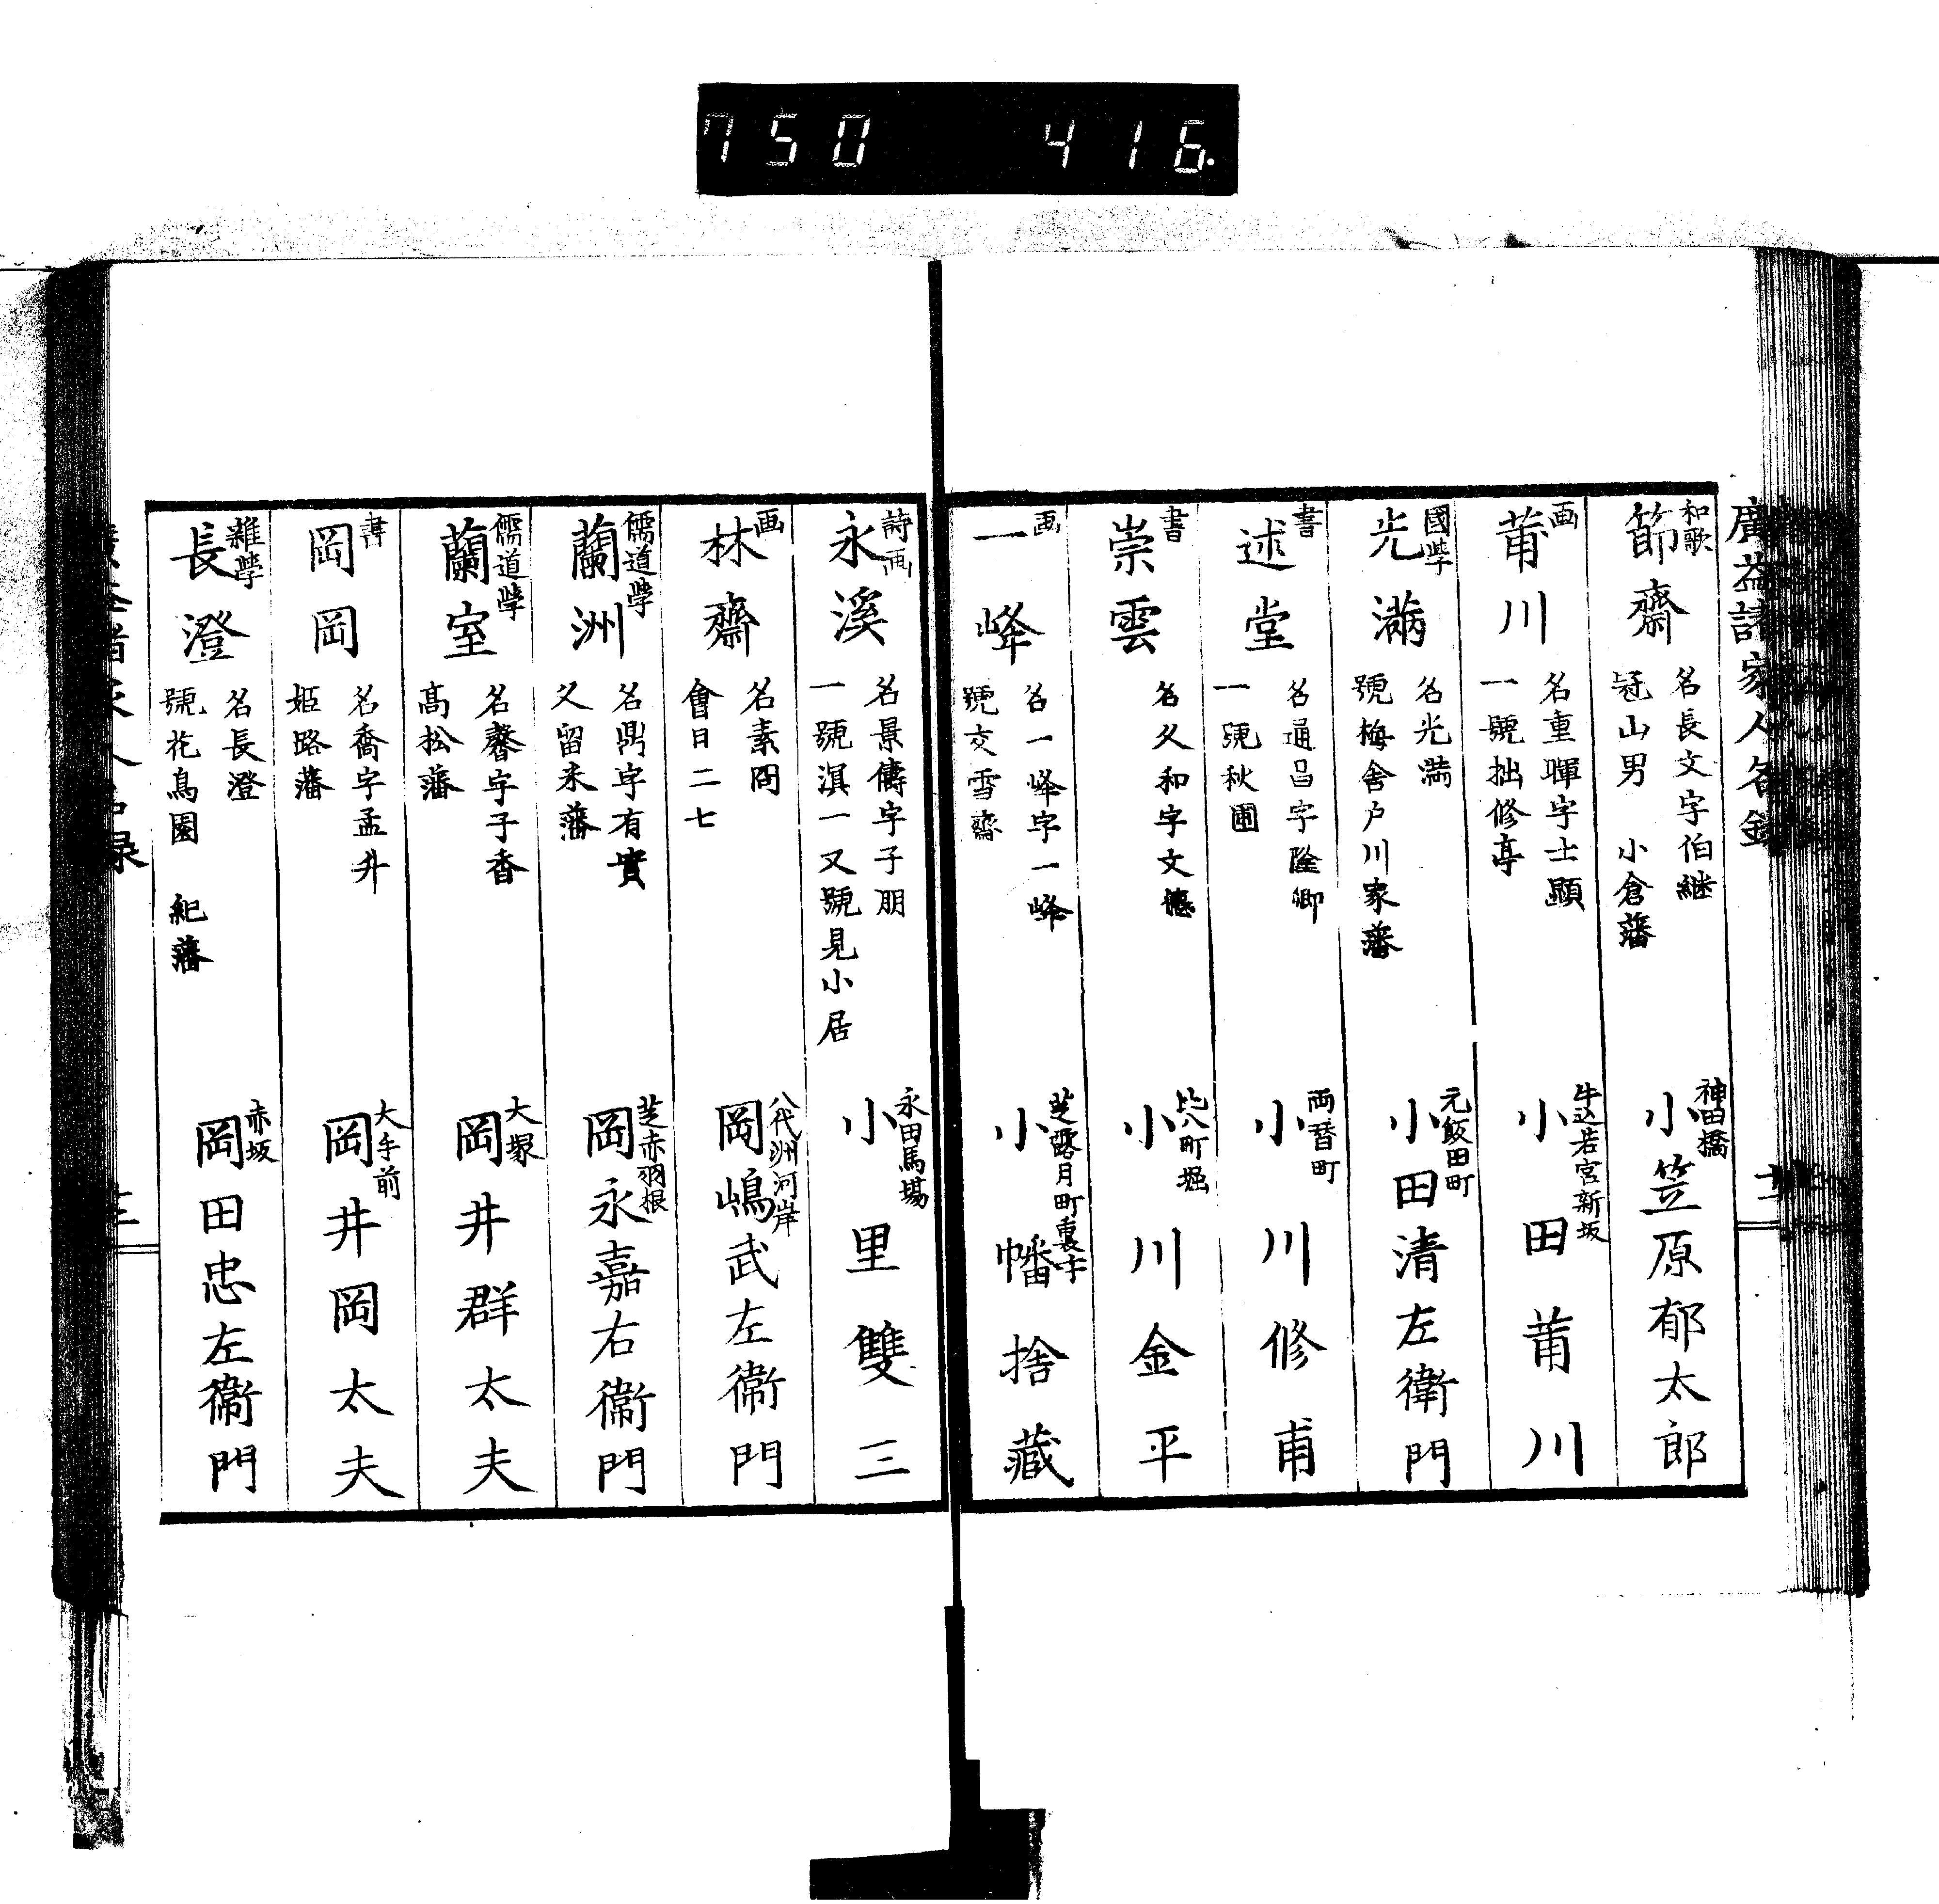 750 416.
廣益諸家人名録
和歌
節齋
名長文字伯継
冠山男 小倉藩
神田橋
小笠原郁太郎
画
莆川
名重暉字士顕
一號拙修亭
牛込若宮新坂
小田莆川
國学
光滿
名光滿
號梅舎戸川家藩
元飯田町
小田清左衛門
書
述堂
名通昌字隆卿
一號秋圃
両替町
小川修甫
書
崇雲
名久和字文德
北八町堀
小川金平
画
一峰
名一峰字一峰
號交雪齋
芝露月町
小幡捨藏
詩画
永溪
名景儔字子朋
一號淇一又號見小居
永田馬場
小里雙三
画
林齋
名素岡
會日二七
八代洲河岸
岡嶋武左衛門
儒道学
蘭洲
名鼎字有實
久留米藩
芝赤羽根
岡永嘉右衛門
儒道学
蘭室
名馨字子香
高松藩
大塚
岡井群太夫
書
岡岡
名喬字孟升
姫路藩
大手前
岡井岡太夫
雜学
長澄
名長澄
號花鳥園 紀藩
赤坂
岡田忠左衛門